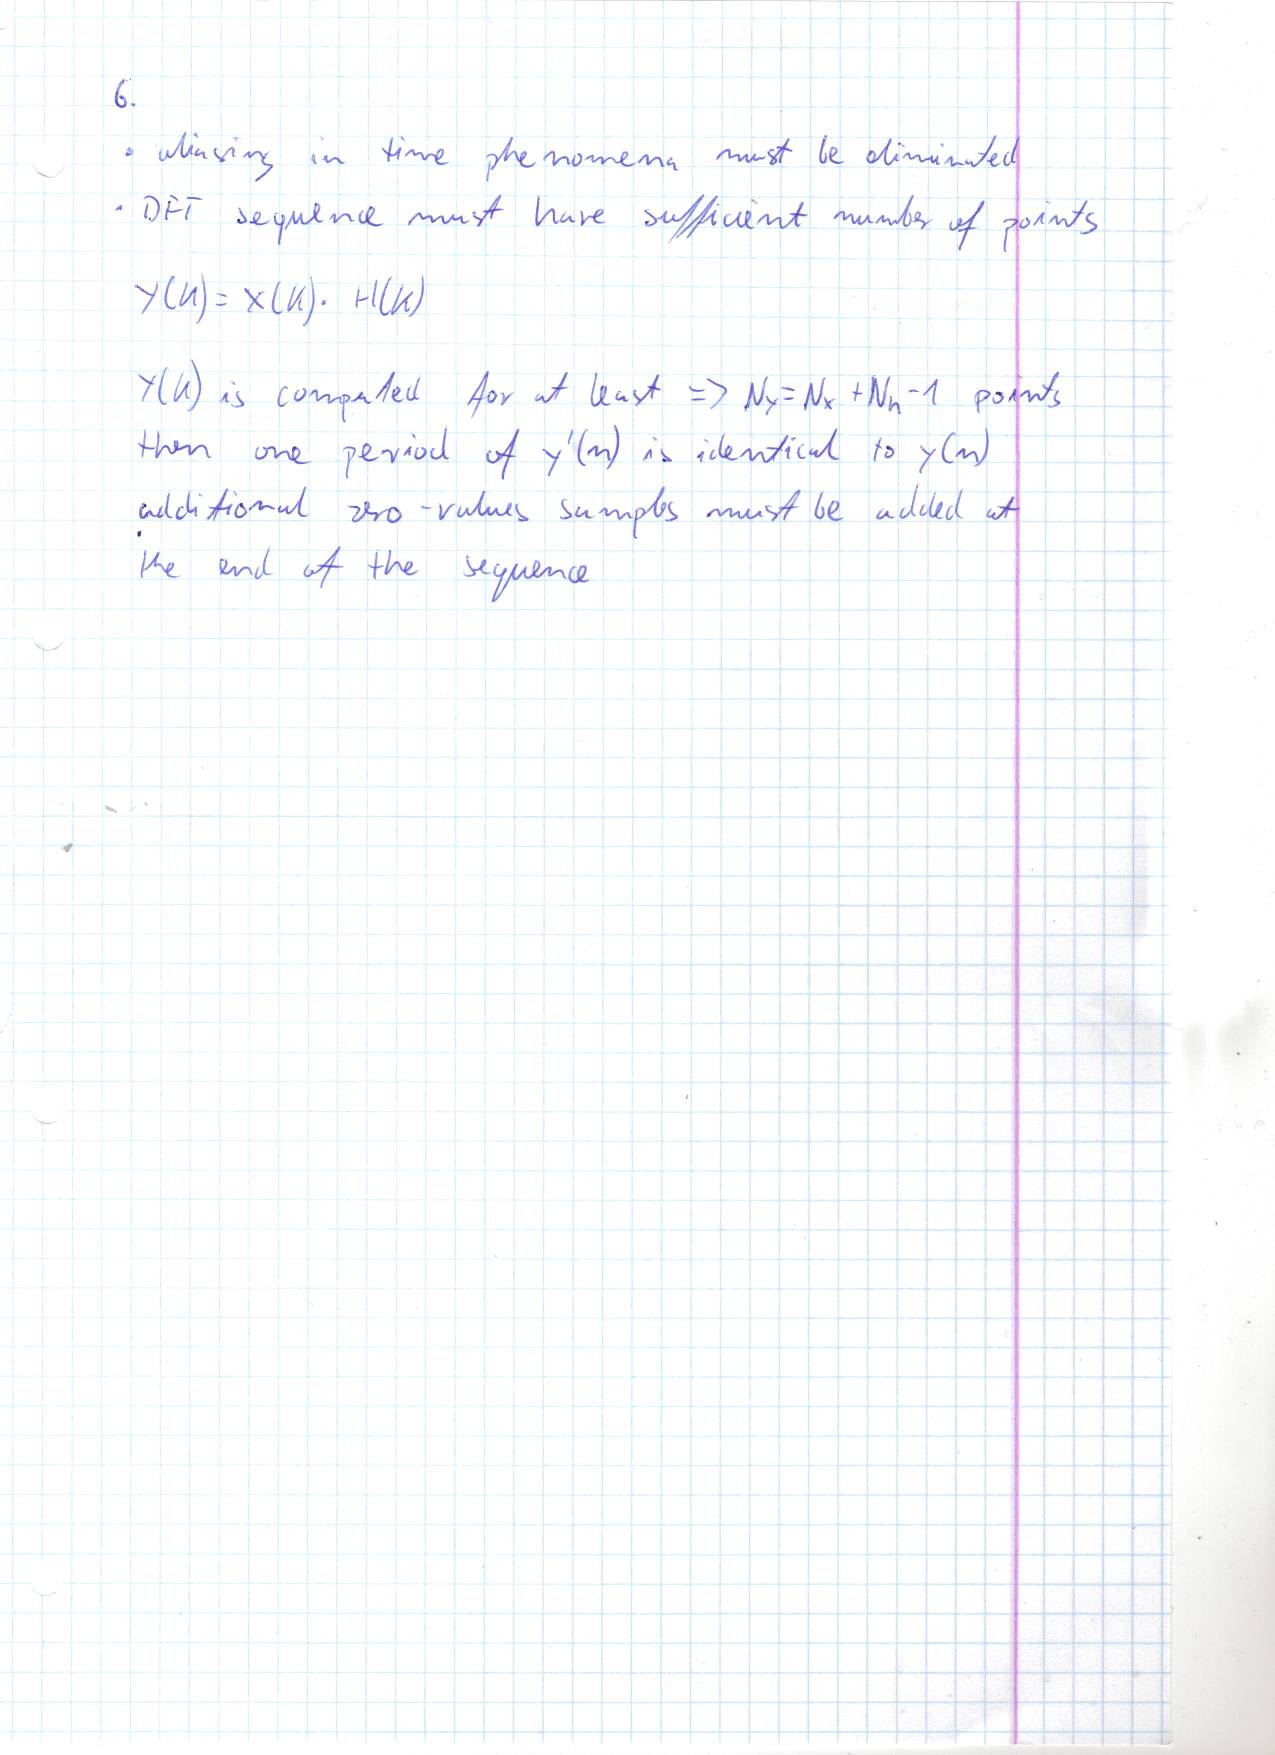 6.
• aliasing in time phenomena must be eliminated
• DFT sequence must have sufficient number of points
Y(k) = X(k) · H(k)
Y(k) is computed for at least => Ny = Nx + Nh - 1 points
then one period of y'(n) is identical to y(n)
additional zero-values samples must be added at
the end of the sequence